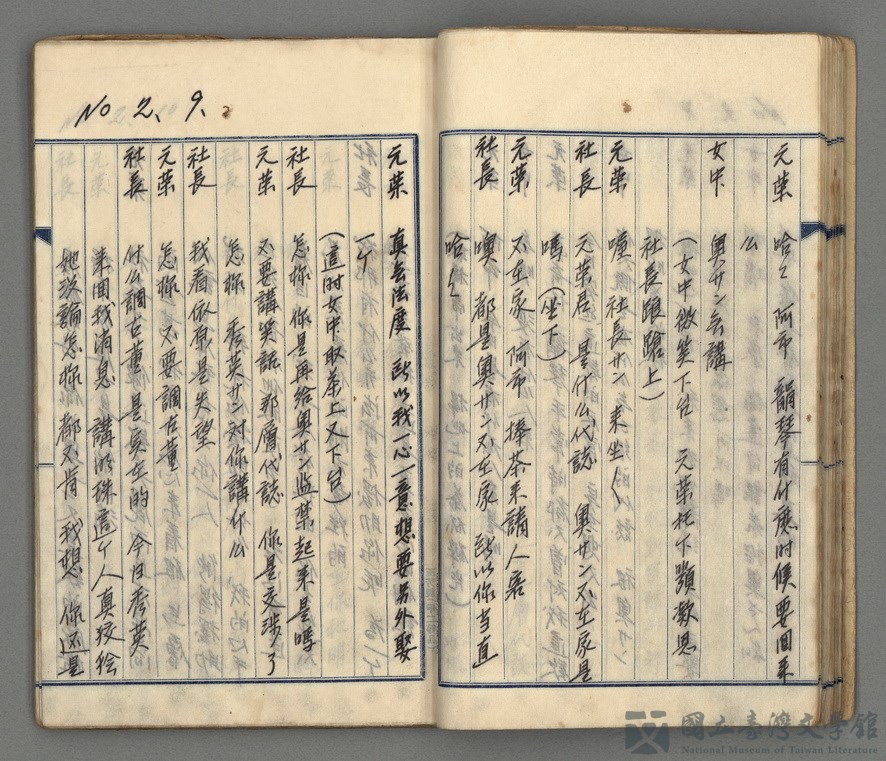 元葉 哈々 阿市 韻琴有什麼时候要回来
么
女中 奧サン去講
（女中微笑下台 元葉托下顎凝思
社長踉蹌上）
元葉 噯 社長サン来坐々
社長 元葉君 是什么代誌 奧サン不在家是
嗎（坐下）
元葉 不在家 阿市 捧茶来請人客
社長 噢 都是奧サン不在家 所以你当直
哈々
No 2、9、
元葉 真無法度 所以我一心一意想要另外娶
一个
（這时女中取茶上又下台）
社長 怎樣 你是再給奧サン监禁起来是嗎
元葉 不要講笑話 那層代誌 你是交涉了
怎樣 秀英サン对你講什么
社長 我看依旧是失望
元葉 怎樣 不要調古董
社長 什么調古董 是实在的 今日秀英
来回我消息 講明珠這个人真狡獪
她没論怎樣 都不肯 我想 你还是
國立臺灣文學館
National Museum of Taiwan Literature